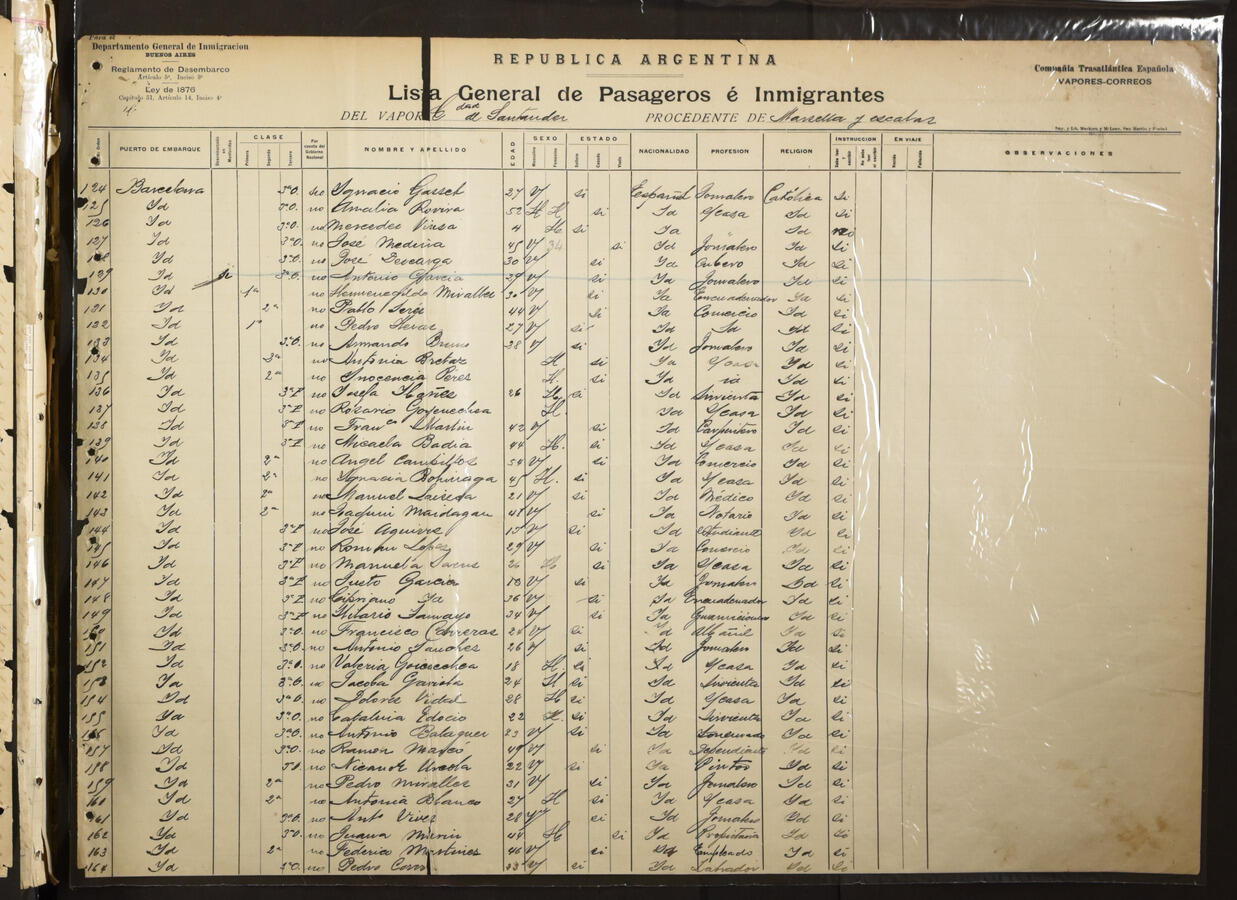 Para el
Departamento General de Inmigracion
BUENOS AIRES
Reglamento de Desembarco
Artículo 5º, Inciso 3º
Ley de 1876
Capitulo 31, Artículo 14, Inciso 4º
4.
REPUBLICA ARGENTINA
Lista General de Pasageros é Inmigrantes
DEL VAPOR Cdad de Santander PROCEDENTE DE Marsella y escalas
Compañia Trasatlántica Española
VAPORES-CORREOS
PUERTO DE EMBARQUE CLASE Primera Segunda Tercera Por cuenta del Gobierno Nacional NOMBRE Y APELLIDO EDAD SEXO Masculino Femenino ESTADO Soltero Casado Viudo NACIONALIDAD PROFESION RELIGION INSTRUCCION EN VIAJE Nacido Fallecido OBSERVACIONES
124 Barcelona 3ªO. no Ignacio Gasset 27 V si Español Jornalero Católica si
125 Id 3ªO. no Amalia Rovira 52 H H si Id Ycasa Id si
126 Id 3ªO. no Mercedes 4 H si Id Id no
127 Id 3ªO. no José Medina 45 V 34 si Id Jornalero Id si
128 Id 3ªO. no José Descarga 30 V si Id Cubero Id si
129 Id si 3ªO. no Antonio Garcia 29 V si Id Jornalero Id si
130 Id 1ª no Hermenegildo Miralles 30 V si Id Encuadernador Id si
131 Id 2ª no Pablo 44 V si Id Comercio Id si
132 Id 1ª no Pedro 27 V si Id Id Id si
133 Id 3ªO. no Armando 28 V si Id Jornalero Id si
134 Id 2ª no Antonia H si Id Ycasa Id si
135 Id 2ª no Inocencia Péres H. si Id Id si
136 Id 3ªP no Josefa Ibañes 26 H si Id Sirvienta Id si
137 Id 3ªP no Rosario Goyenechea H. Id Ycasa Id si
138 Id 3ªP no Franca Martin 42 V si Id Carpintero Id si
139 Id 3ªP no Micaela Badia 44 H. si Id Ycasa Id si
140 Id 2ª no Angel 54 V si Id Comercio Id si
141 Id 2ª no Ignacia 45 H. si Id Ycasa Id si
142 Id 2ª no Manuel 21 V si Id Médico Id si
143 Id 2ª no Joaquin Maidagan 48 V si Id Notario Id si
144 Id 3ªP no José Aguirre 15 V si Id estudiante Id si
145 Id 3ªP no Roman Lopez 29 V si Id Comercio Id si
146 Id 3ªP no Manuela 26 H si Id Ycasa Id si
147 Id 3ªP no Justo Garcia V si Id Jornalero Id si
148 Id 3ªP no Cipriano Id 36 V si Id Encuadernador Id si
149 Id 3ªP no Hilario Tamayo 34 V si Id Id si
150 Id 3ªO. no Francisco Cabreras 24 V si Id Albañil Id si
151 Id 3ªO. no Antonio Sanches 26 V si Id Jornalero Id si
152 Id 3ªO. no Valeria Goicoechea 18 H. si Id Ycasa Id si
153 Id 3ªO. no Jacoba 24 H si Id Sirvienta Id si
154 Id 3ªO. no Dolores Vidal 28 H si Id Ycasa Id si
155 Id 3ªO. no Catalina 22 H. si Id Sirvienta Id si
156 Id 3ªO. no Antonio Balaguer 23 V si Id Id si
157 Id 3ªO. no Ramon Marcó 49 V si Id Dependiente Id si
158 Id no Nicanor 22 V si Id Pintor Id si
159 Id 2ª no Pedro Miralles 31 V si Id Jornalero Id si
160 Id 2ª no Antonia Blanco 27 H si Id Ycasa Id si
161 Id 3ªO. no Antº Vives 28 V si Id Jornalero Id si
162 Id 3ªO. no Juana Marin 44 H si Id Propietaria Id si
163 Id 2ª no Federico Martines 46 V si Id Empleado Id si
164 Id no Pedro 33 V si Id Labrador Id si